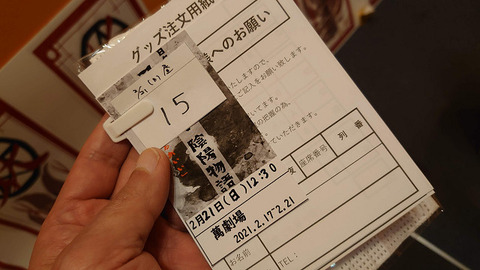 グッズ注文用紙
へのお願い
たしますので、
ご記入をお願い致します。
いてます。
の把握の為、
ていただきます。
15
陰陽物語
2月21日(日)12:30
萬劇場
2021.2.17-2.21
座席番号
列
番
お名前
TEL: